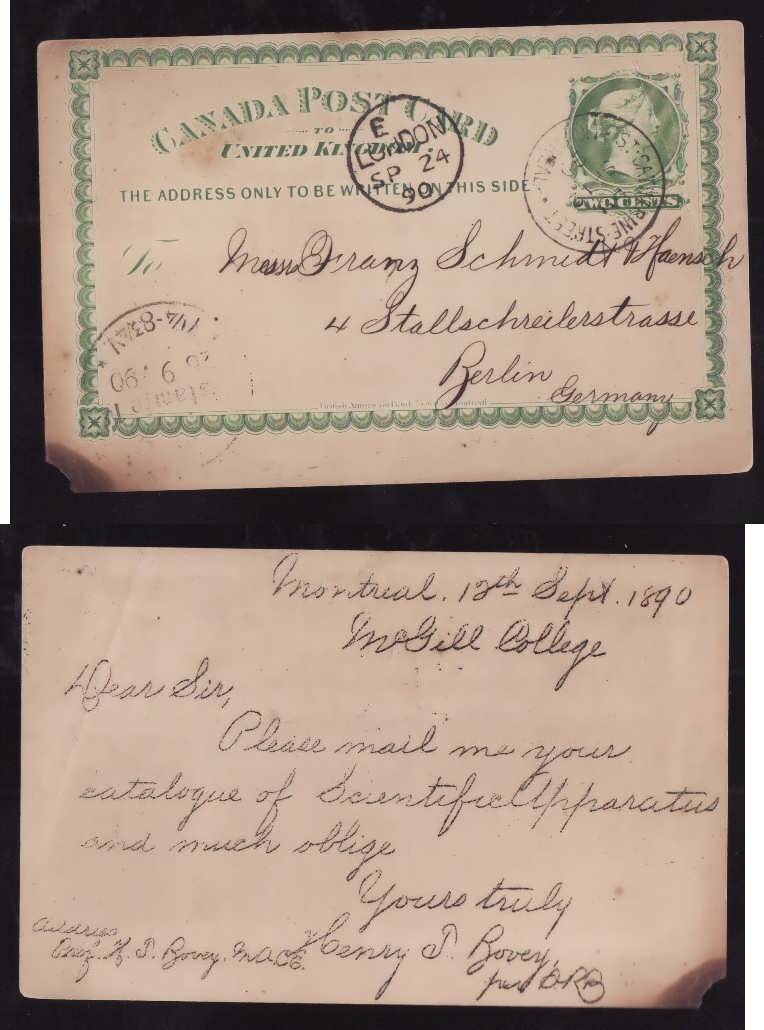 CANADA POST CARD
TO
UNITED KINGDOM.
THE ADDRESS ONLY TO BE WRITTEN ON THIS SIDE
E
LONDON
SP 24
90
TWO CENTS
To
Messrs Franz Schmidt & Haensch
4 Stallschreilerstrasse
Berlin
Germany
9 . 90
Montreal. 12th Sept. 1890
McGill College
Dear Sir,
Please mail me your
catalogue of Scientific Apparatus
and much oblige
Yours truly
Henry T. Bovey,
Address
H. T. Bovey. M.A. C.E.
per